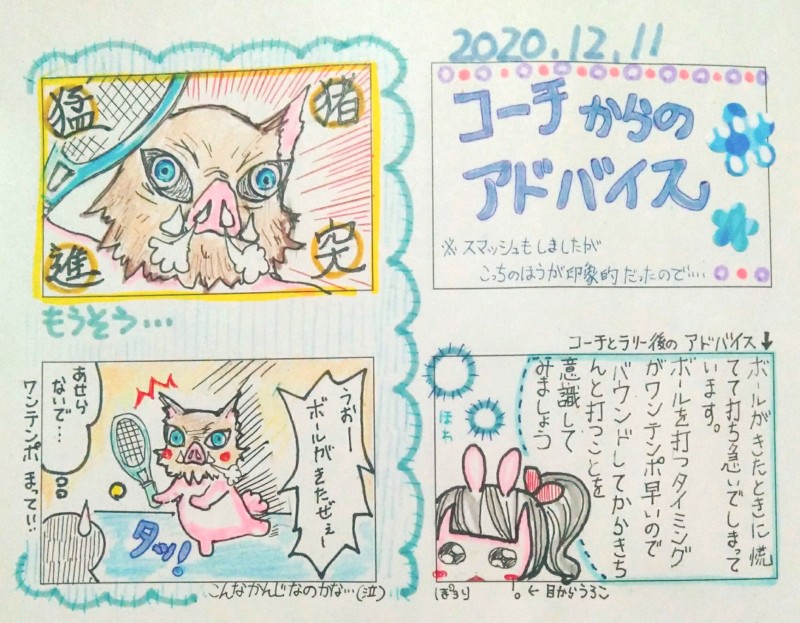 2020.12.11
コーチからの
アドバイス
※ スマッシュもしましたが
こっちのほうが印象的だったので‥‥
コーチとラリー後の アドバイス↓
ボールがきたときに慌
てて打ち急いでしまって
います。
ボールを打つタイミング
がワンテンポ早いので
バウンドしてからきち
んと打つことを
意識して
みましょう
ほわ
ぽろり
← 目からうろこ
猪
突
猛
進
もうそう…
うおー
ボールが
きたぜぇー
あせら
ないで…
ワンテンポ まって!!
タッ!
こんなかんじなのかな…(泣)